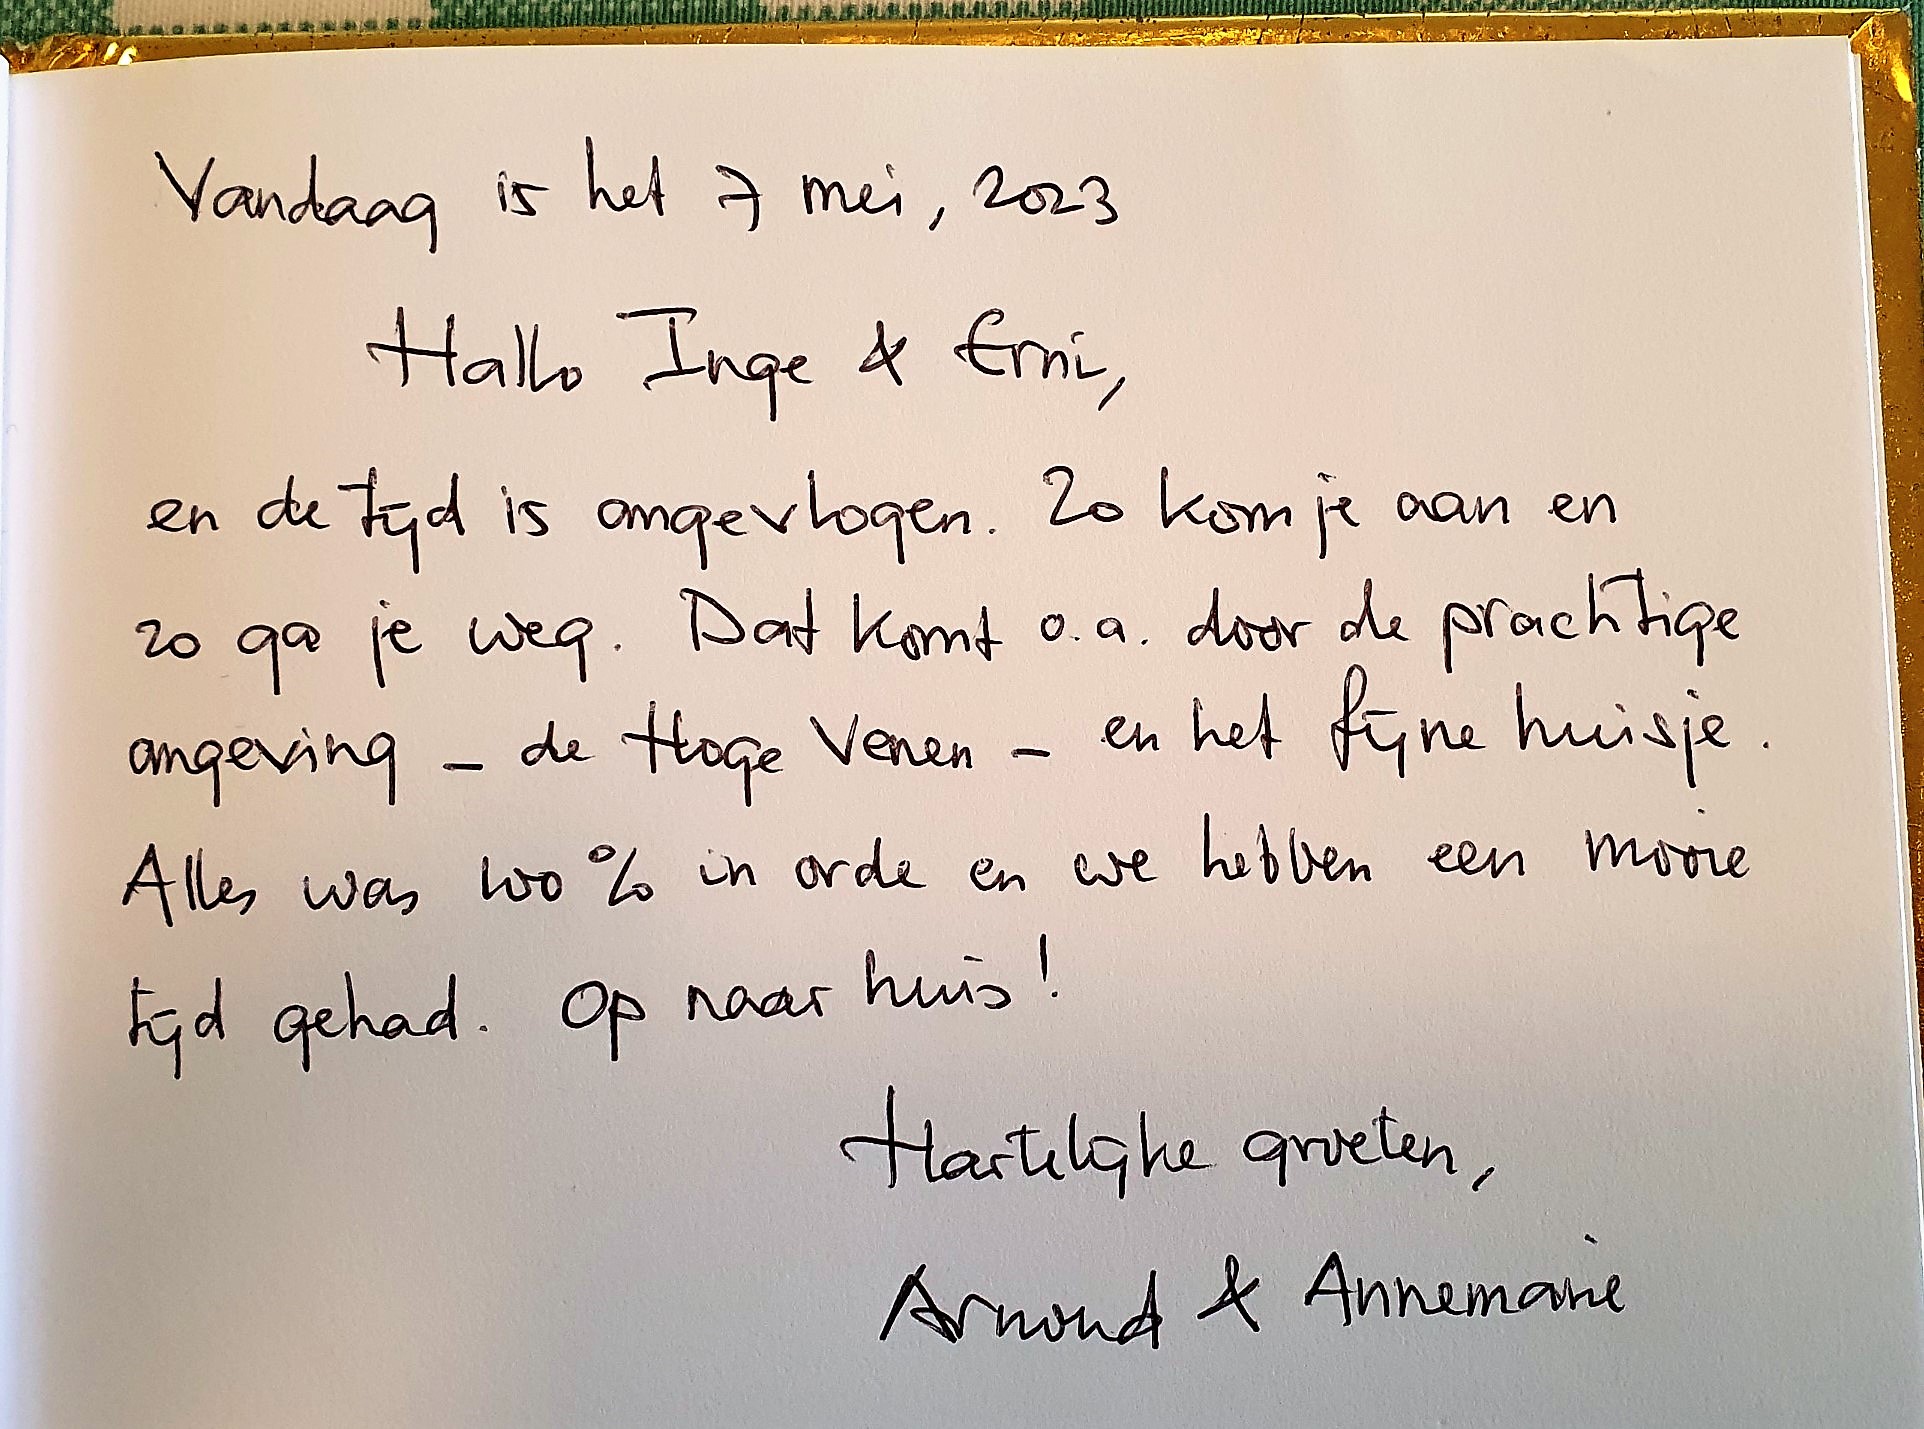 Vandaag is het 7 mei, 2023
Hallo Inge & Erni,
en de tijd is omgevlogen. Zo kom je aan en
zo ga je weg. Dat komt o.a. door de prachtige
omgeving - de Hoge Venen - en het fijne huisje.
Alles was 100% in orde en we hebben een mooie
tijd gehad. Op naar huis!
Hartelijke groeten,
Arnoud & Annemarie